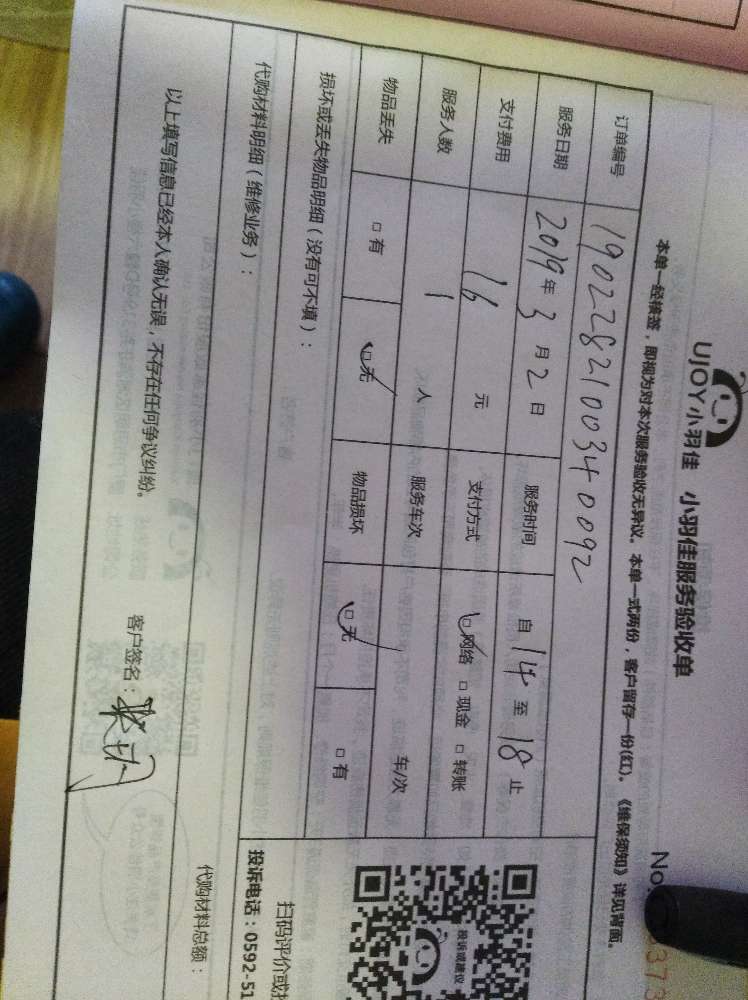 UJOY小羽佳 小羽佳服务验收单
No. 373
本单一经核签，即视为对本次服务验收无异议。本单一式两份，客户留存一份(红)。《维保须知》详见背面。
订单编号 1902282100340092
服务日期 2019年3月2日 服务时间 自14至18止
支付费用 16元 支付方式 □网络 □现金 □转账
服务人数 1人 服务车次 车/次
物品丢失 □有 □无 物品损坏 □无 □有
损坏或丢失物品明细（没有可不填）：
代购材料明细（维修业务）：
代购材料总额：
以上填写信息已经本人确认无误，不存在任何争议纠纷。
客户签名：
投诉或建议
扫码评价或投
投诉电话：0592-51